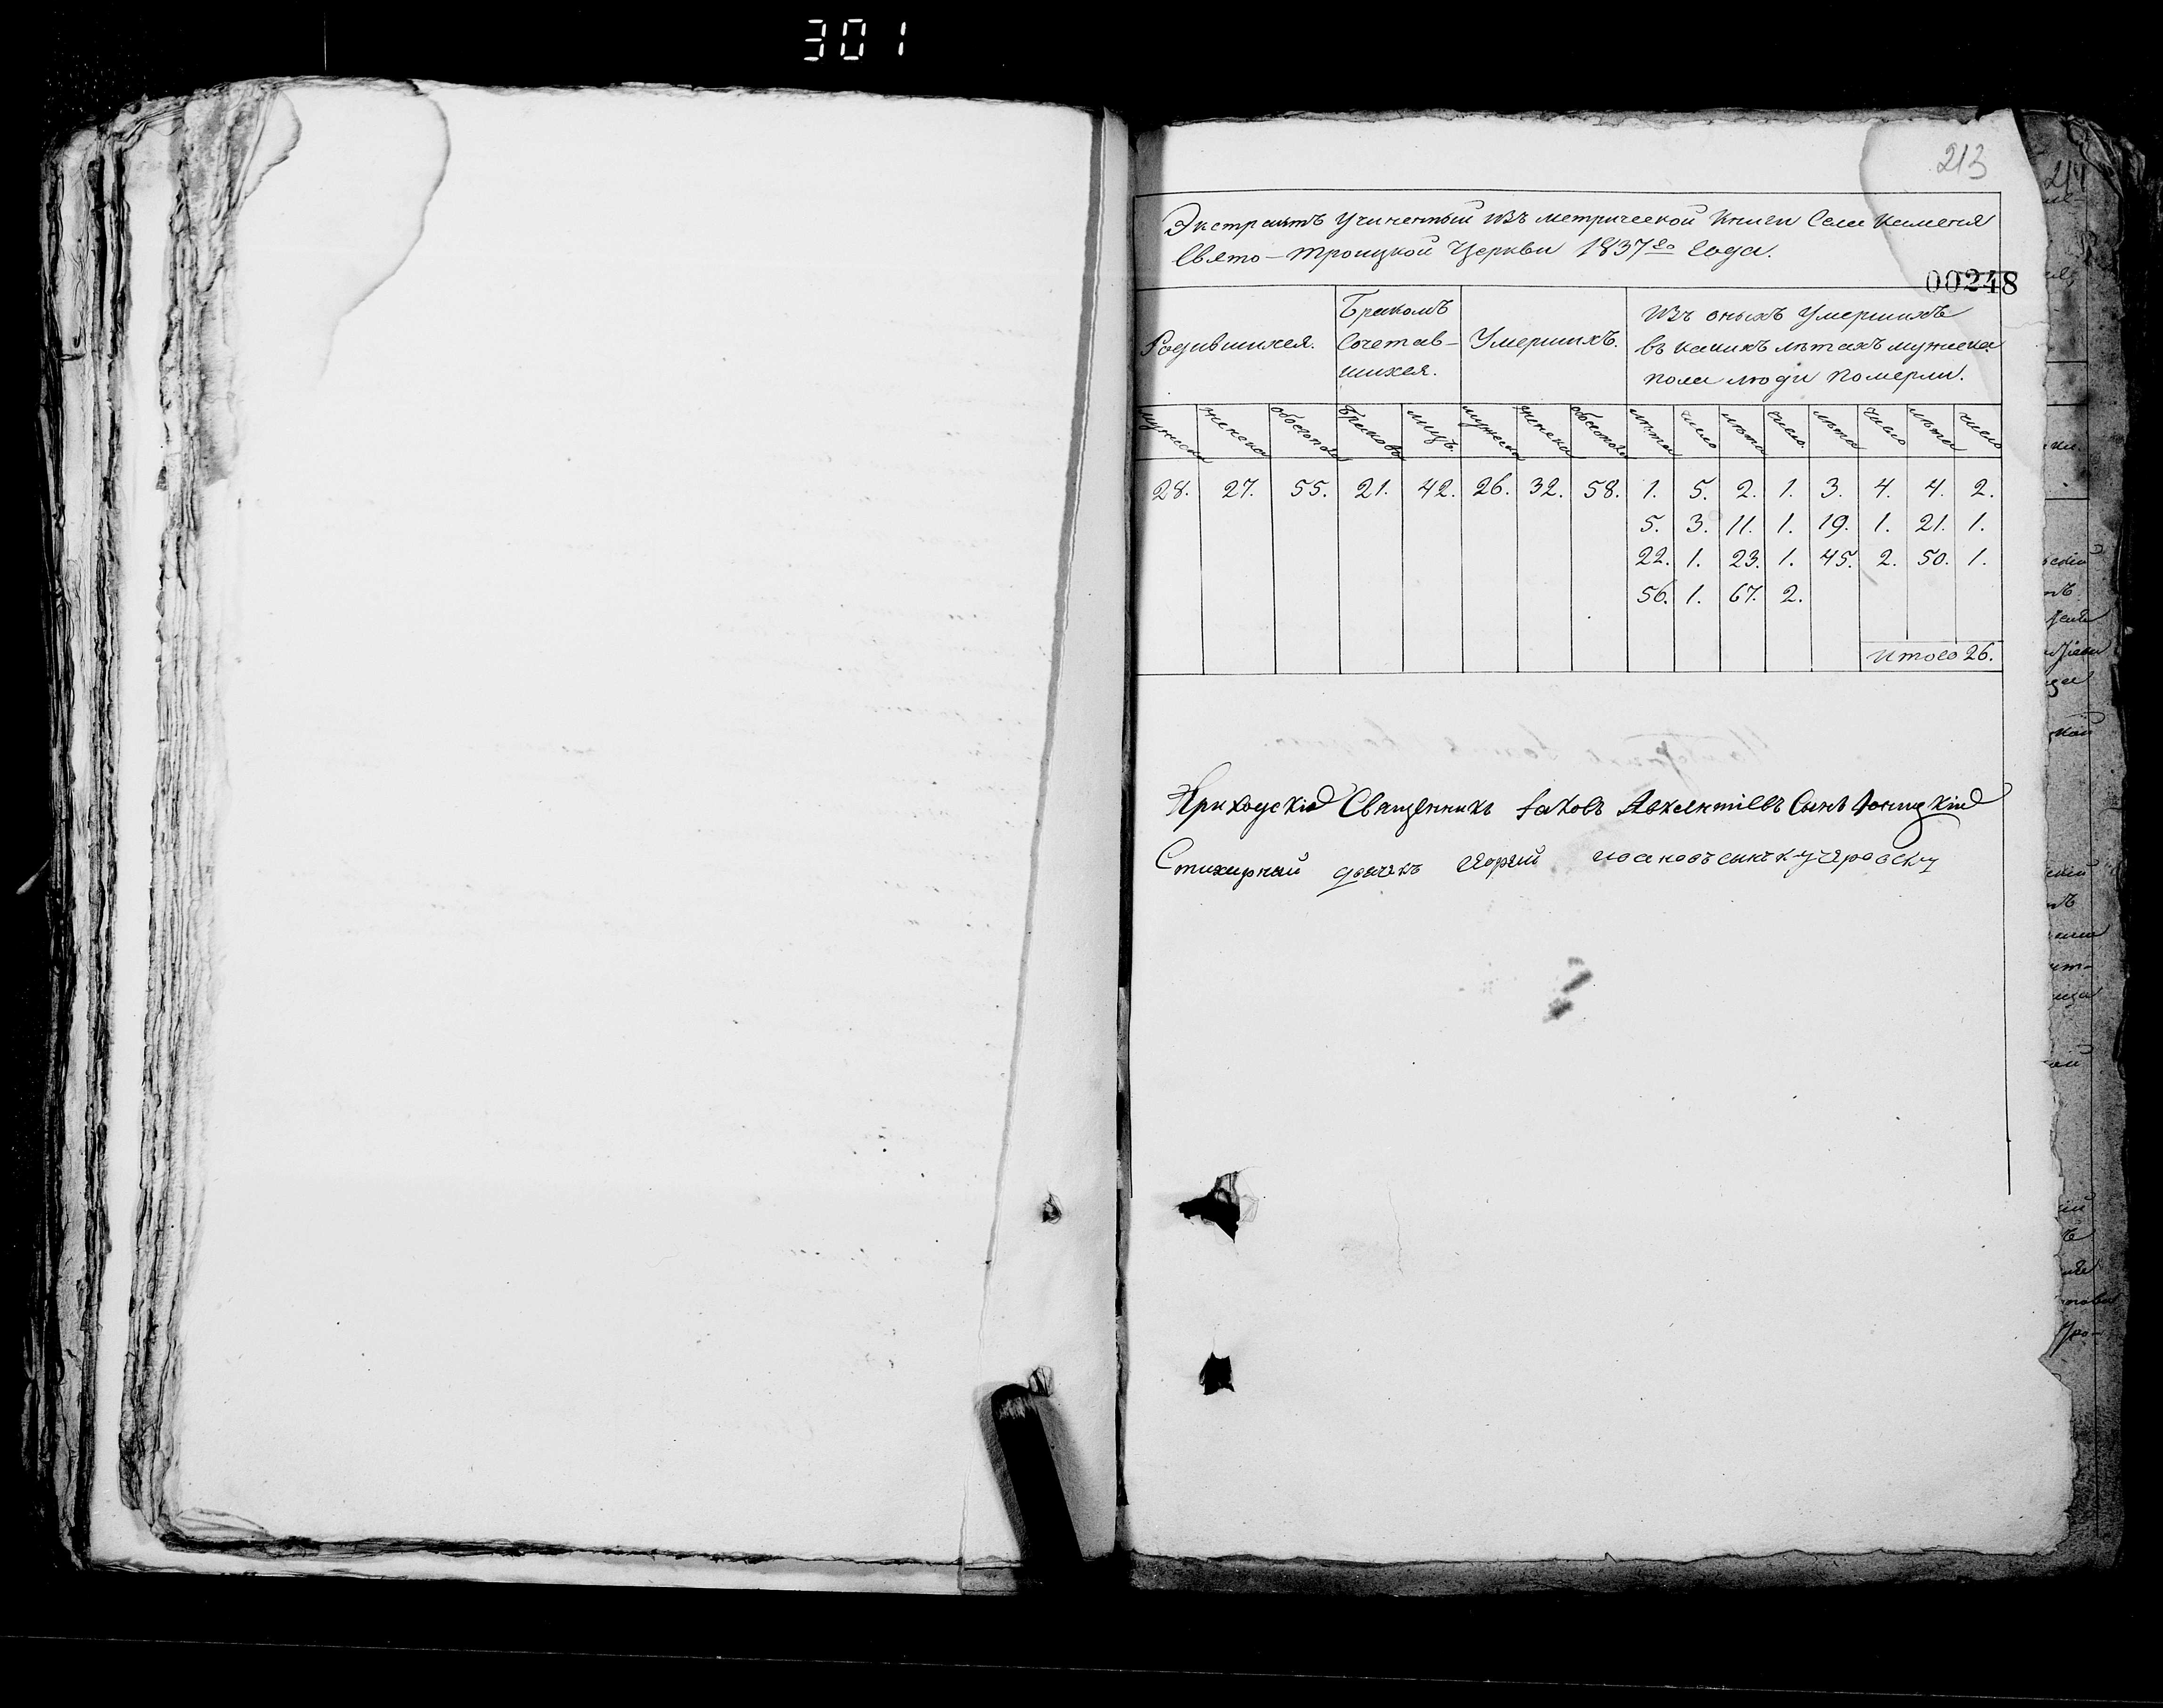 301
213
Экстрактъ учиненный изъ метрической книги Села Каменя
Свято-Троицкой Церкви 1837го года.
00248
Родившихся.
Бракомъ Сочетав-шихся.
Умершихъ.
Изъ оныхъ Умершихъ
въ какихъ лѣтахъ мужеска
пола люди померли.
мужеска женска обоегопола браковъ лицъ. мужеска женска обоегопола лѣта число лѣта число лѣта число лѣта число
28. 27. 55. 21. 42. 26. 32. 58. 1. 5. 2. 1. 3. 4. 4. 2.
5. 3. 11. 1. 19. 1. 21. 1.
22. 1. 23. 1. 45. 2. 50. 1.
56. 1. 67. 2.
Итого 26.
Приходскій Священникъ Іаковъ Авксентіевъ Сынъ
Стихарный дьячекъ сынъ